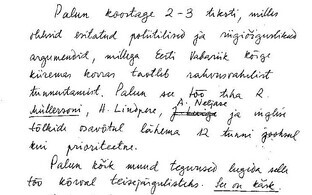 Palun koostage 2-3 teksti, milles
oleksid esitatud poliitilised ja riigiõiguslikud
argumendid, millega Eesti Vabariik kõige
kiiremas korras taotleb rahvusvahelist
tunnustamist. Palun see töö teha R.
Müllersoni, H. Lindpere, A. Neljase ja inglise
tõlkide osavõtul lähema 12 tunni jooksul
kui prioriteetne.
Palun kõik muud tegevused lugeda selle
töö kõrval teisejärgulisteks. See on käsk.